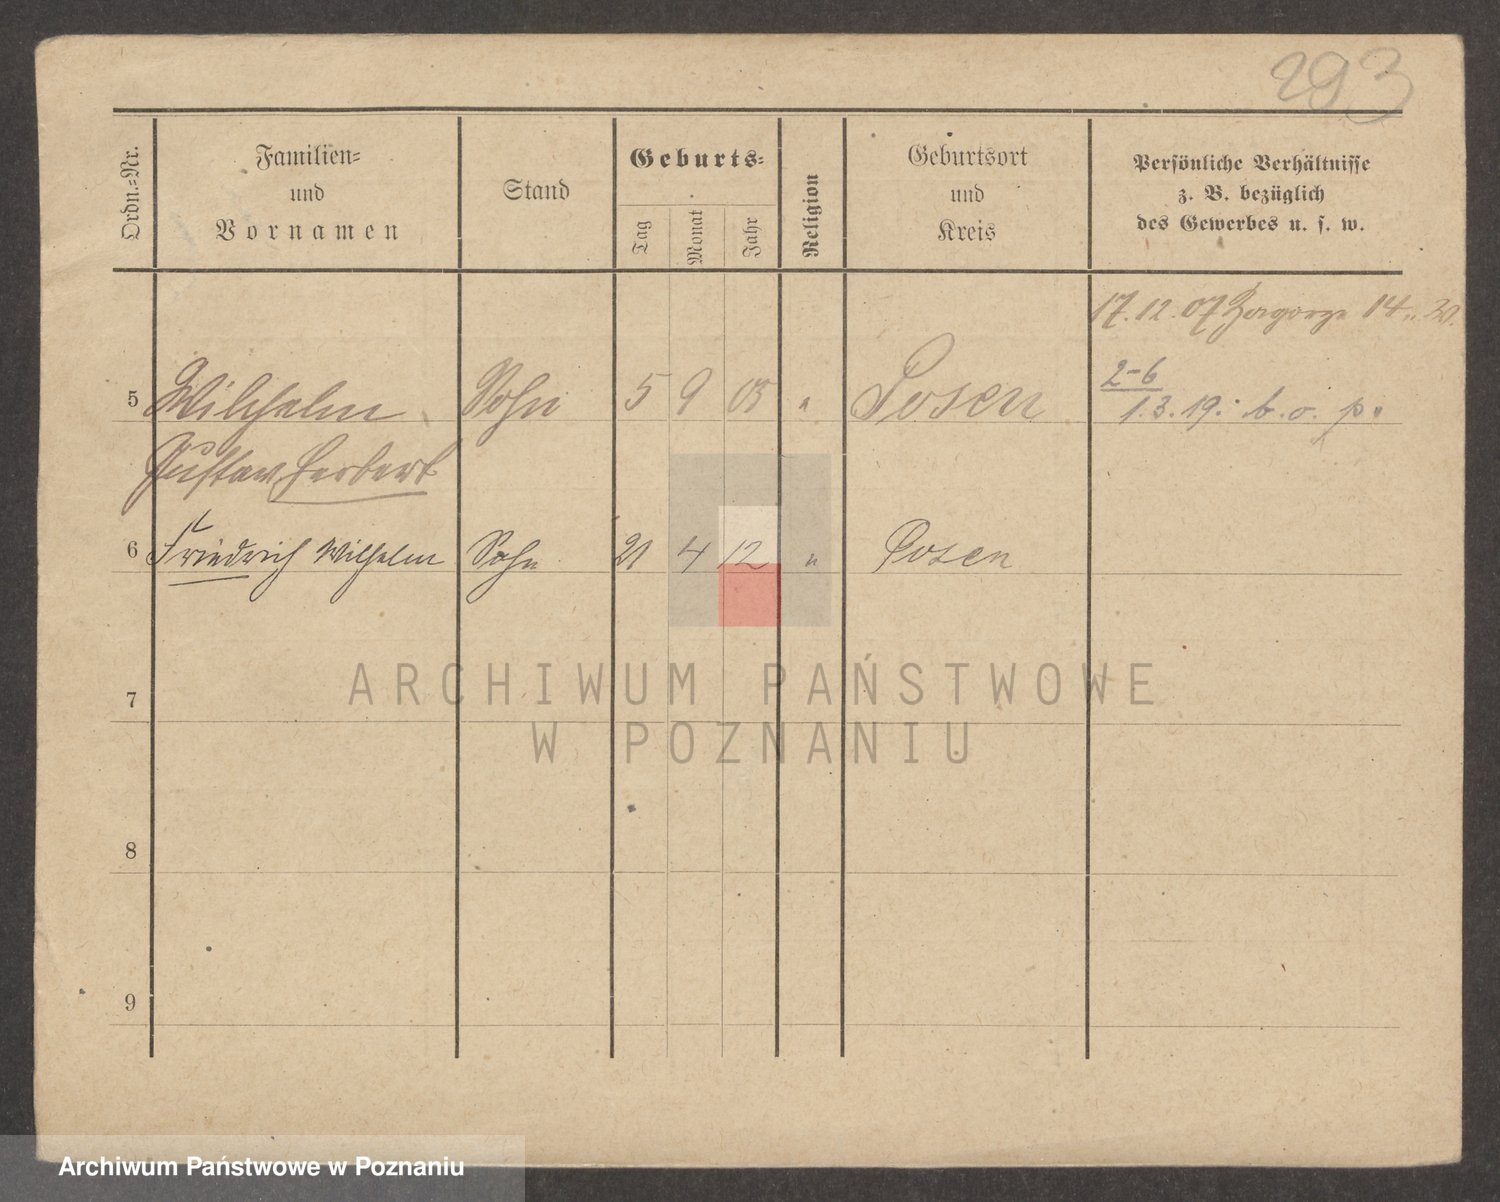 293
Ordn.=Nr.
Familien=
und
Vornamen
Stand
Geburts=
Tag
Monat
Jahr
Religion
Geburtsort
und
Kreis
Persönliche Verhältnisse
z. B. bezüglich
des Gewerbes u. s. w.
17.12.07 Zagorze 14
2-6
1.3.19: b. o. p.
5 Wilhelm Sohn 5 9 05 " Posen
Gustav Herbert
6 Friedrich Wilhelm Sohn 21 4 12 " Posen
7
8
9
ARCHIWUM PAŃSTWOWE
W POZNANIU
Archiwum Państwowe w Poznaniu